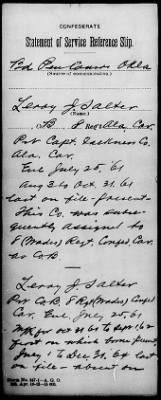 CONFEDERATE
Statement of Service Reference Slip.
Bd Pen Comrs Okla
(Source of communication.)
Leroy J. Salter
(Name.)
B 8 Ala. Cav.
Pvt Capt. Jackness Co.
Ala. Cav.
Enl July 25, '61
Aug 3 to Oct 31, 61
last on file - present -
This Co. was subse-
quently assigned to
8 (Wades) Regt. Confed. Cav.
as Co B.
Leroy J. Salter
Pvt Co B. 8 Regt (Wades) Confed
Cav. Enl July 25, 61
MR for Oct 31 61 to Sept 1 62
first on which borne present,
July 1 to Dec 31, 64 last
on file - absent on
Form No. 147-1-A. G. O.